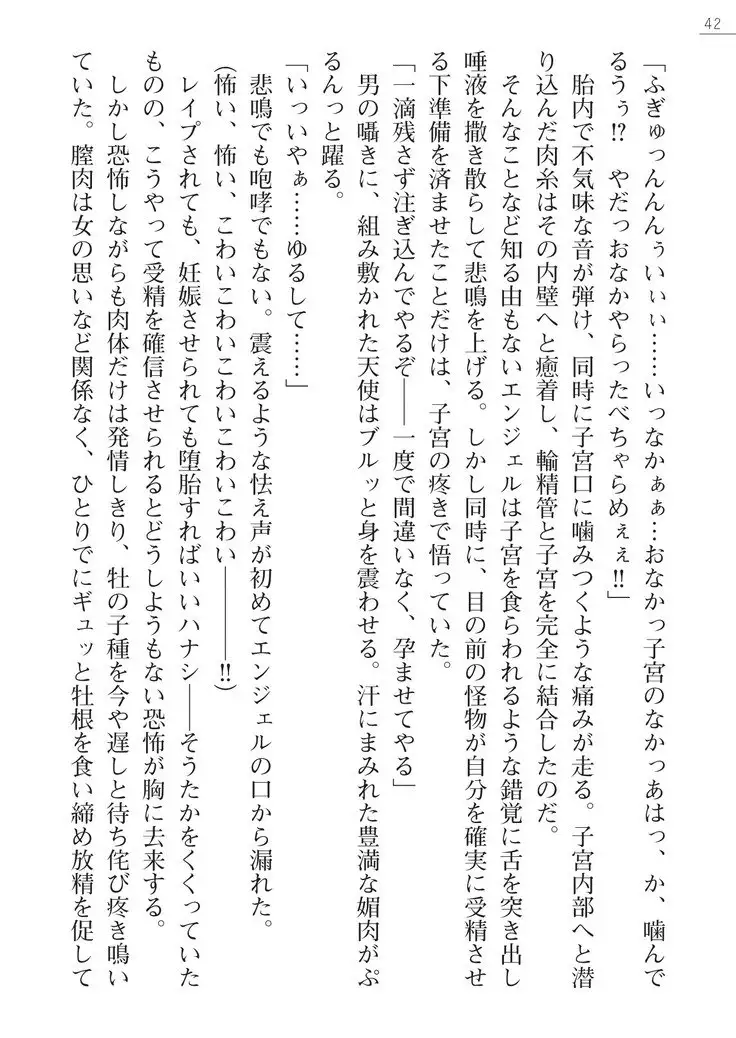 42
「ふぎゅっんんんぅいぃぃ……いっなかぁぁ…おなかっ子宮のなかっあはっ、か、噛んで
るうぅ!?　やだっおなかやらったべちゃらめぇぇ!!」
　胎内で不気味な音が弾け、同時に子宮口に噛みつくような痛みが走る。子宮内部へと潜
り込んだ肉糸はその内壁へと癒着し、輸精管と子宮を完全に結合したのだ。
　そんなことなど知る由もないエンジェルは子宮を食らわれるような錯覚に舌を突き出し
唾液を撒き散らして悲鳴を上げる。しかし同時に、目の前の怪物が自分を確実に受精させ
る下準備を済ませたことだけは、子宮の疼きで悟っていた。
「一滴残さず注ぎ込んでやるぞ――一度で間違いなく、孕ませてやる」
　男の囁きに、組み敷かれた天使はブルッと身を震わせる。汗にまみれた豊満な媚肉がぷ
るんっと躍る。
「いっいやぁ……ゆるして……」
　悲鳴でも咆哮でもない。震えるような怯え声が初めてエンジェルの口から漏れた。
（怖い、怖い、こわいこわいこわいこわいこわい――――!!）
　レイプされても、妊娠させられても堕胎すればいいハナシ――そうたかをくくっていた
ものの、こうやって受精を確信させられるとどうしようもない恐怖が胸に去来する。
　しかし恐怖しながらも肉体だけは発情しきり、牡の子種を今や遅しと待ち侘び疼き鳴い
ていた。膣肉は女の思いなど関係なく、ひとりでにギュッと牡根を食い締め放精を促して